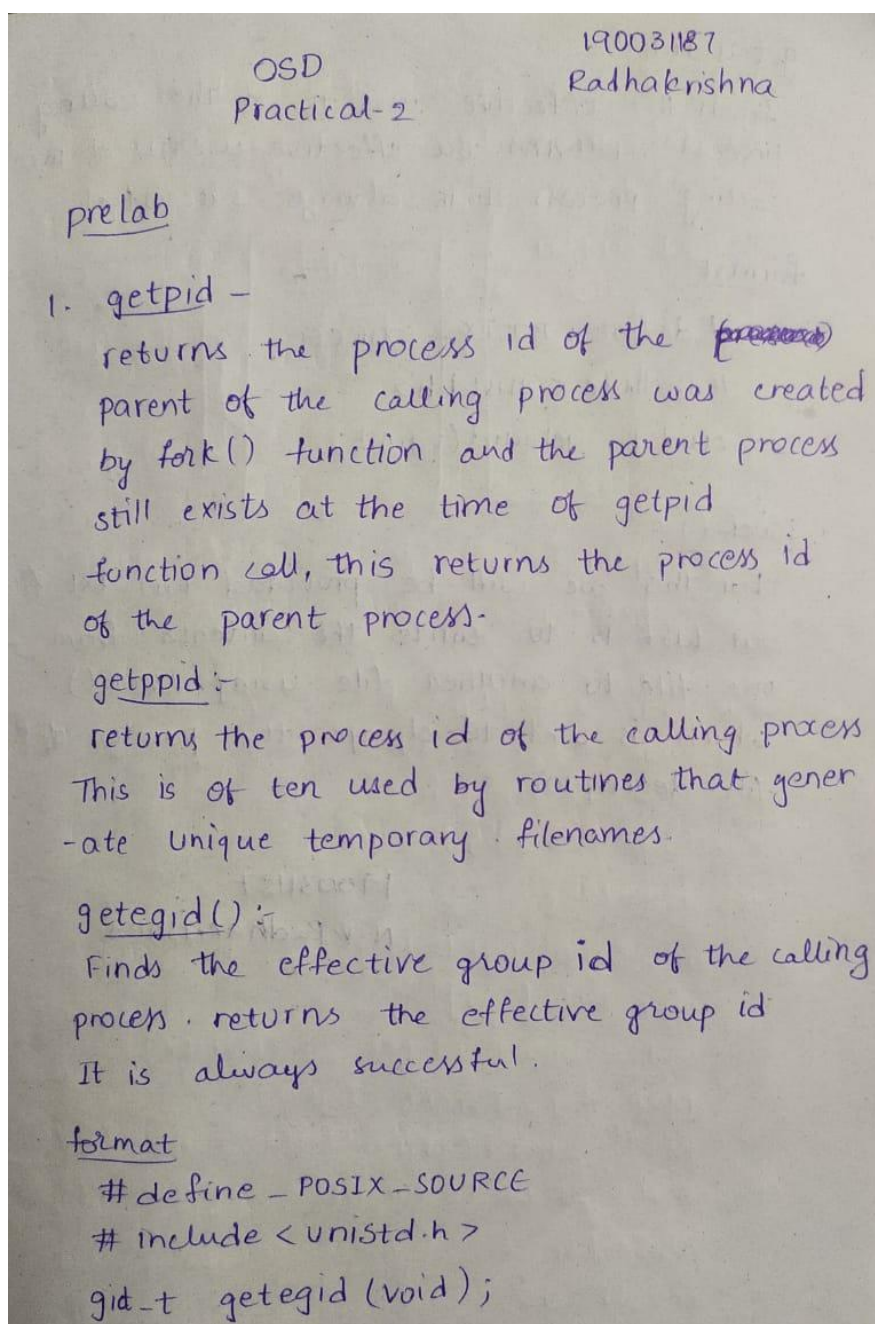 OSD
Practical-2
190031187
Radhakrishna
prelab
1. getpid -
returns the process id of the
parent of the calling process was created
by fork() function and the parent process
still exists at the time of getpid
function call, this returns the process id
of the parent process.
getppid :-
returns the process id of the calling process
This is of ten used by routines that gener
-ate unique temporary filenames.
getegid() :-
Finds the effective group id of the calling
process. returns the effective group id
It is always successful.
format
# define _ POSIX _ SOURCE
# include < unistd.h >
gid_t getegid (void);